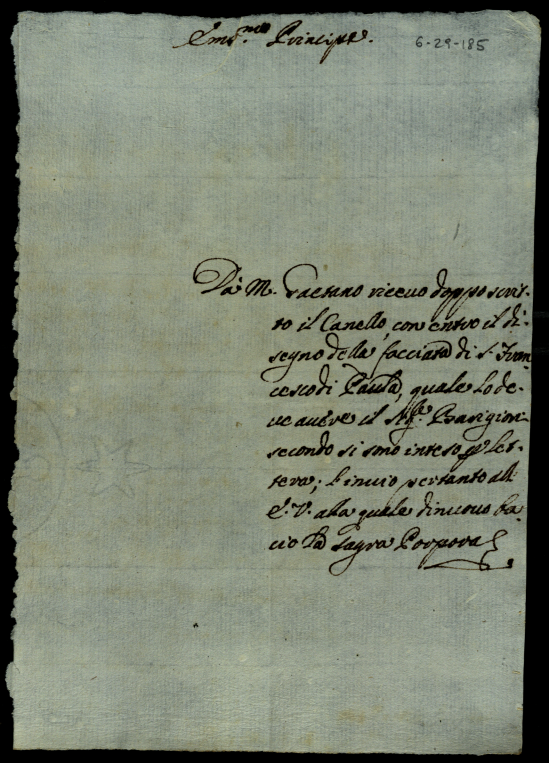 Em.mo Principe.
6-29-185
Da M. Gaetano riceuo doppo scrit-
to il Canello, con entro il di-
segno della facciata di S. Fran
cesco di Paula, quale lo de-
ue auere il Sig.re
secondo si sono inteso p let-
tera; l'inuio pertanto all
E. V. alla quale di nuouo ba-
cio la Sagra Porpora